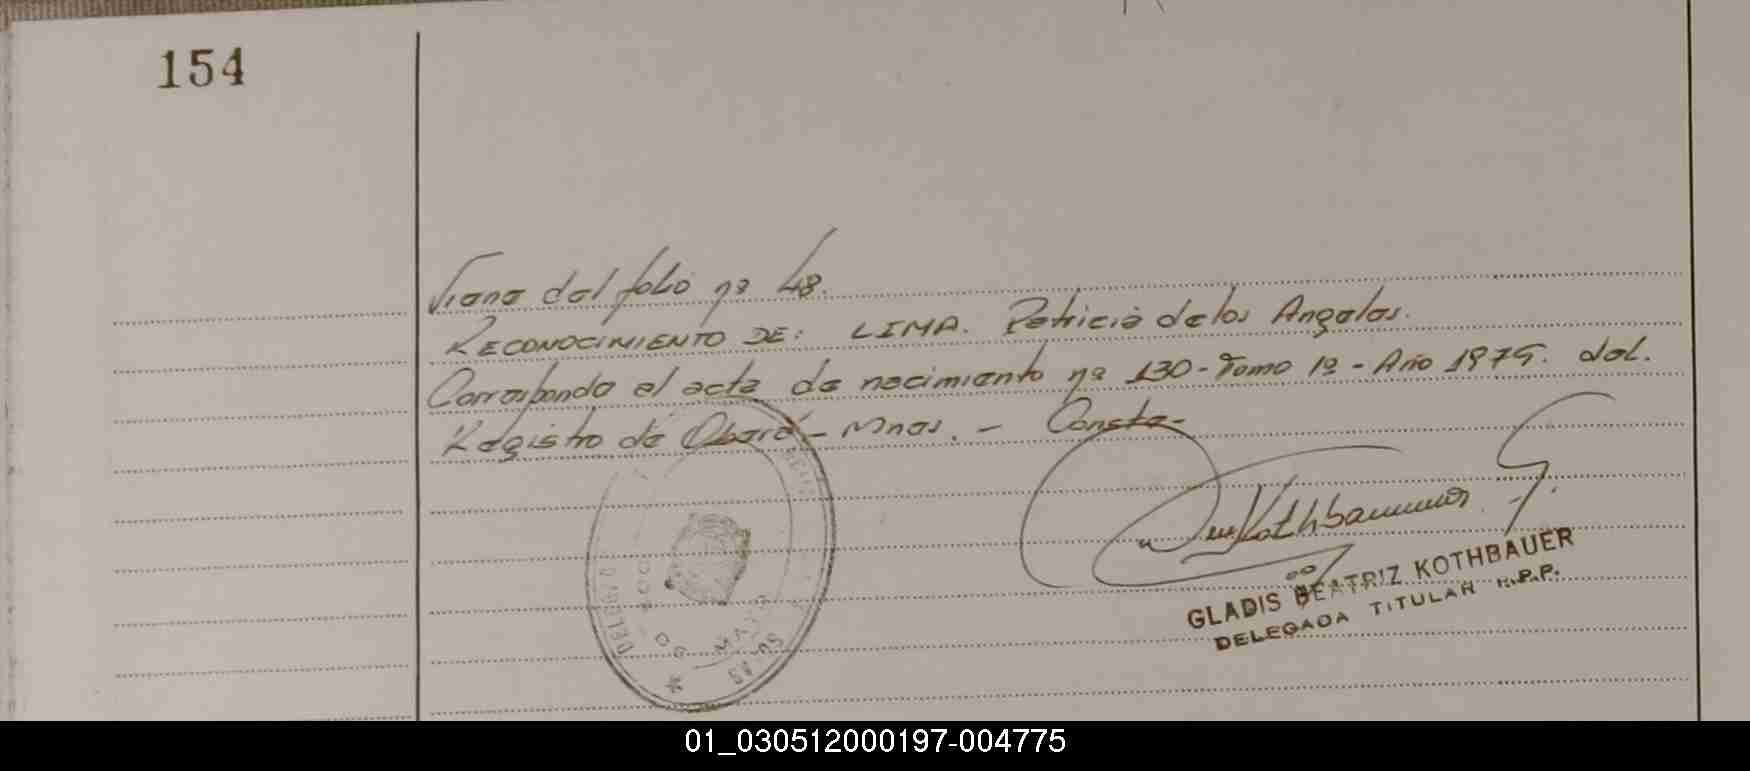 154
Viene del folio nº 48.
RECONOCIMIENTO DE: LIMA. Patricia de los Angeles.
Corresponde al acta de nacimiento nº 130 - Tomo 1º - Año 1979. del.
Registro de Oberá - Mnes. - Conste -
Kothbauer G.
GLADIS BEATRIZ KOTHBAUER
DELEGADA TITULAR R.P.P.
01_030512000197-004775